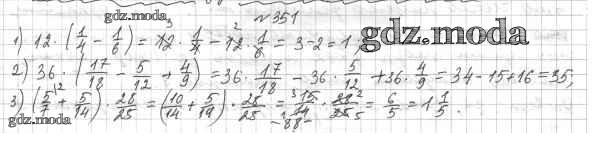 gdz.moda
№351
1) 12 · (1/4 − 1/6) = 12 · 1/4 − 12 · 1/6 = 3 − 2 = 1
gdz.moda
2) 36 · (17/18 − 5/12 + 4/9) = 36 · 17/18 − 36 · 5/12 + 36 · 4/9 = 34 − 15 + 16 = 35,
3) (5/7 + 5/14) · 28/25 = (10/14 + 5/19) · 28/25 = 15/14 · 28/25 = 6/5 = 1 1/5.
gdz.moda
-88-